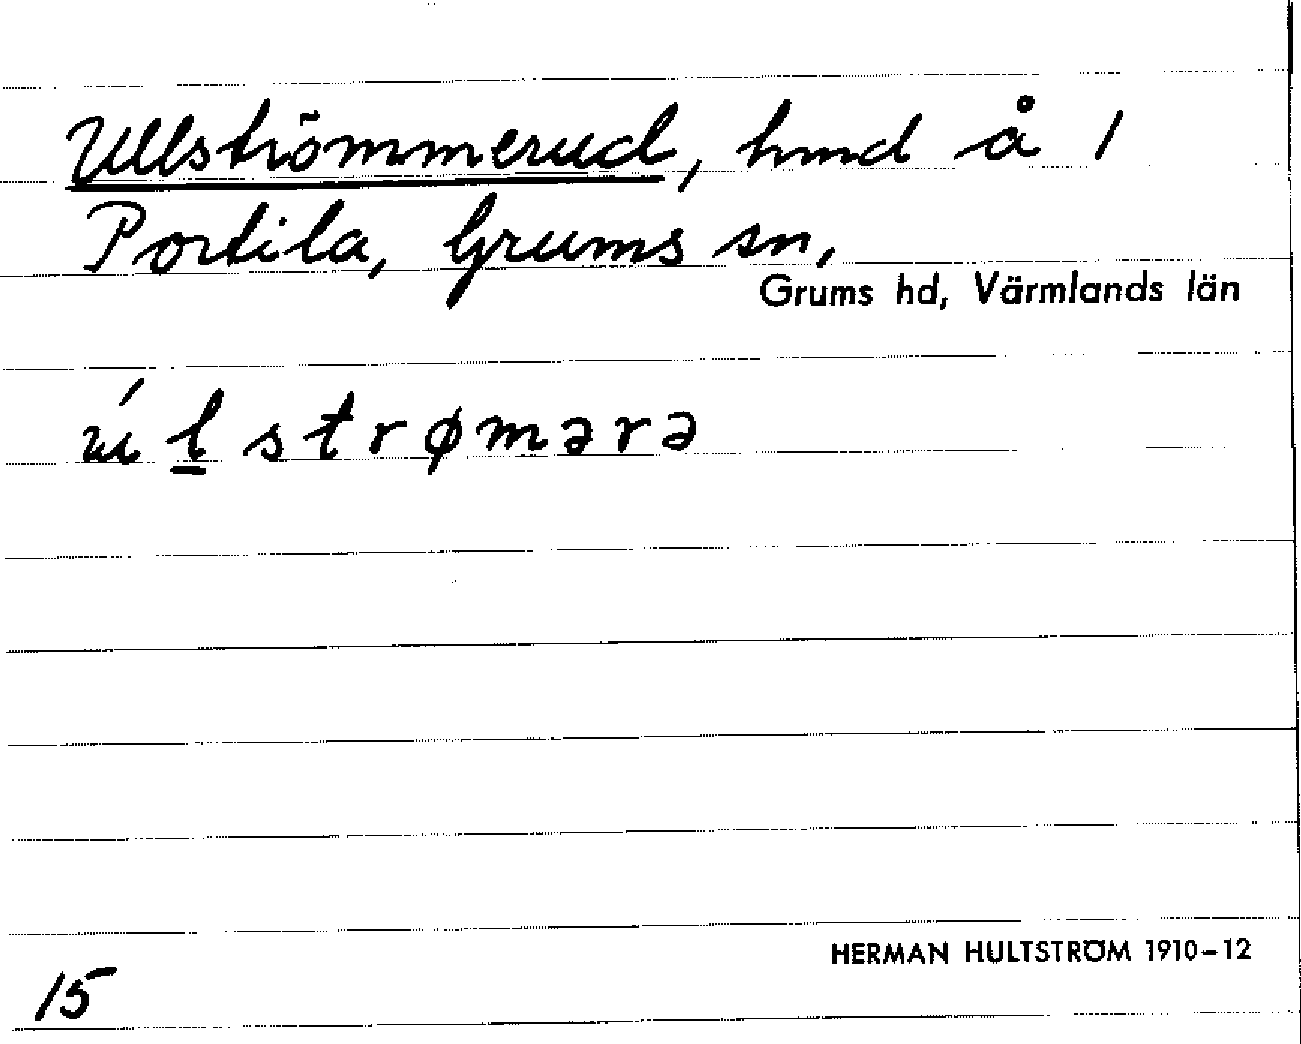 Ullströmmerud, hmd å 1
Portila, Grums sn,
Grums hd, Värmlands län
úl̲strømərə
HERMAN HULTSTRÖM 1910–12
15